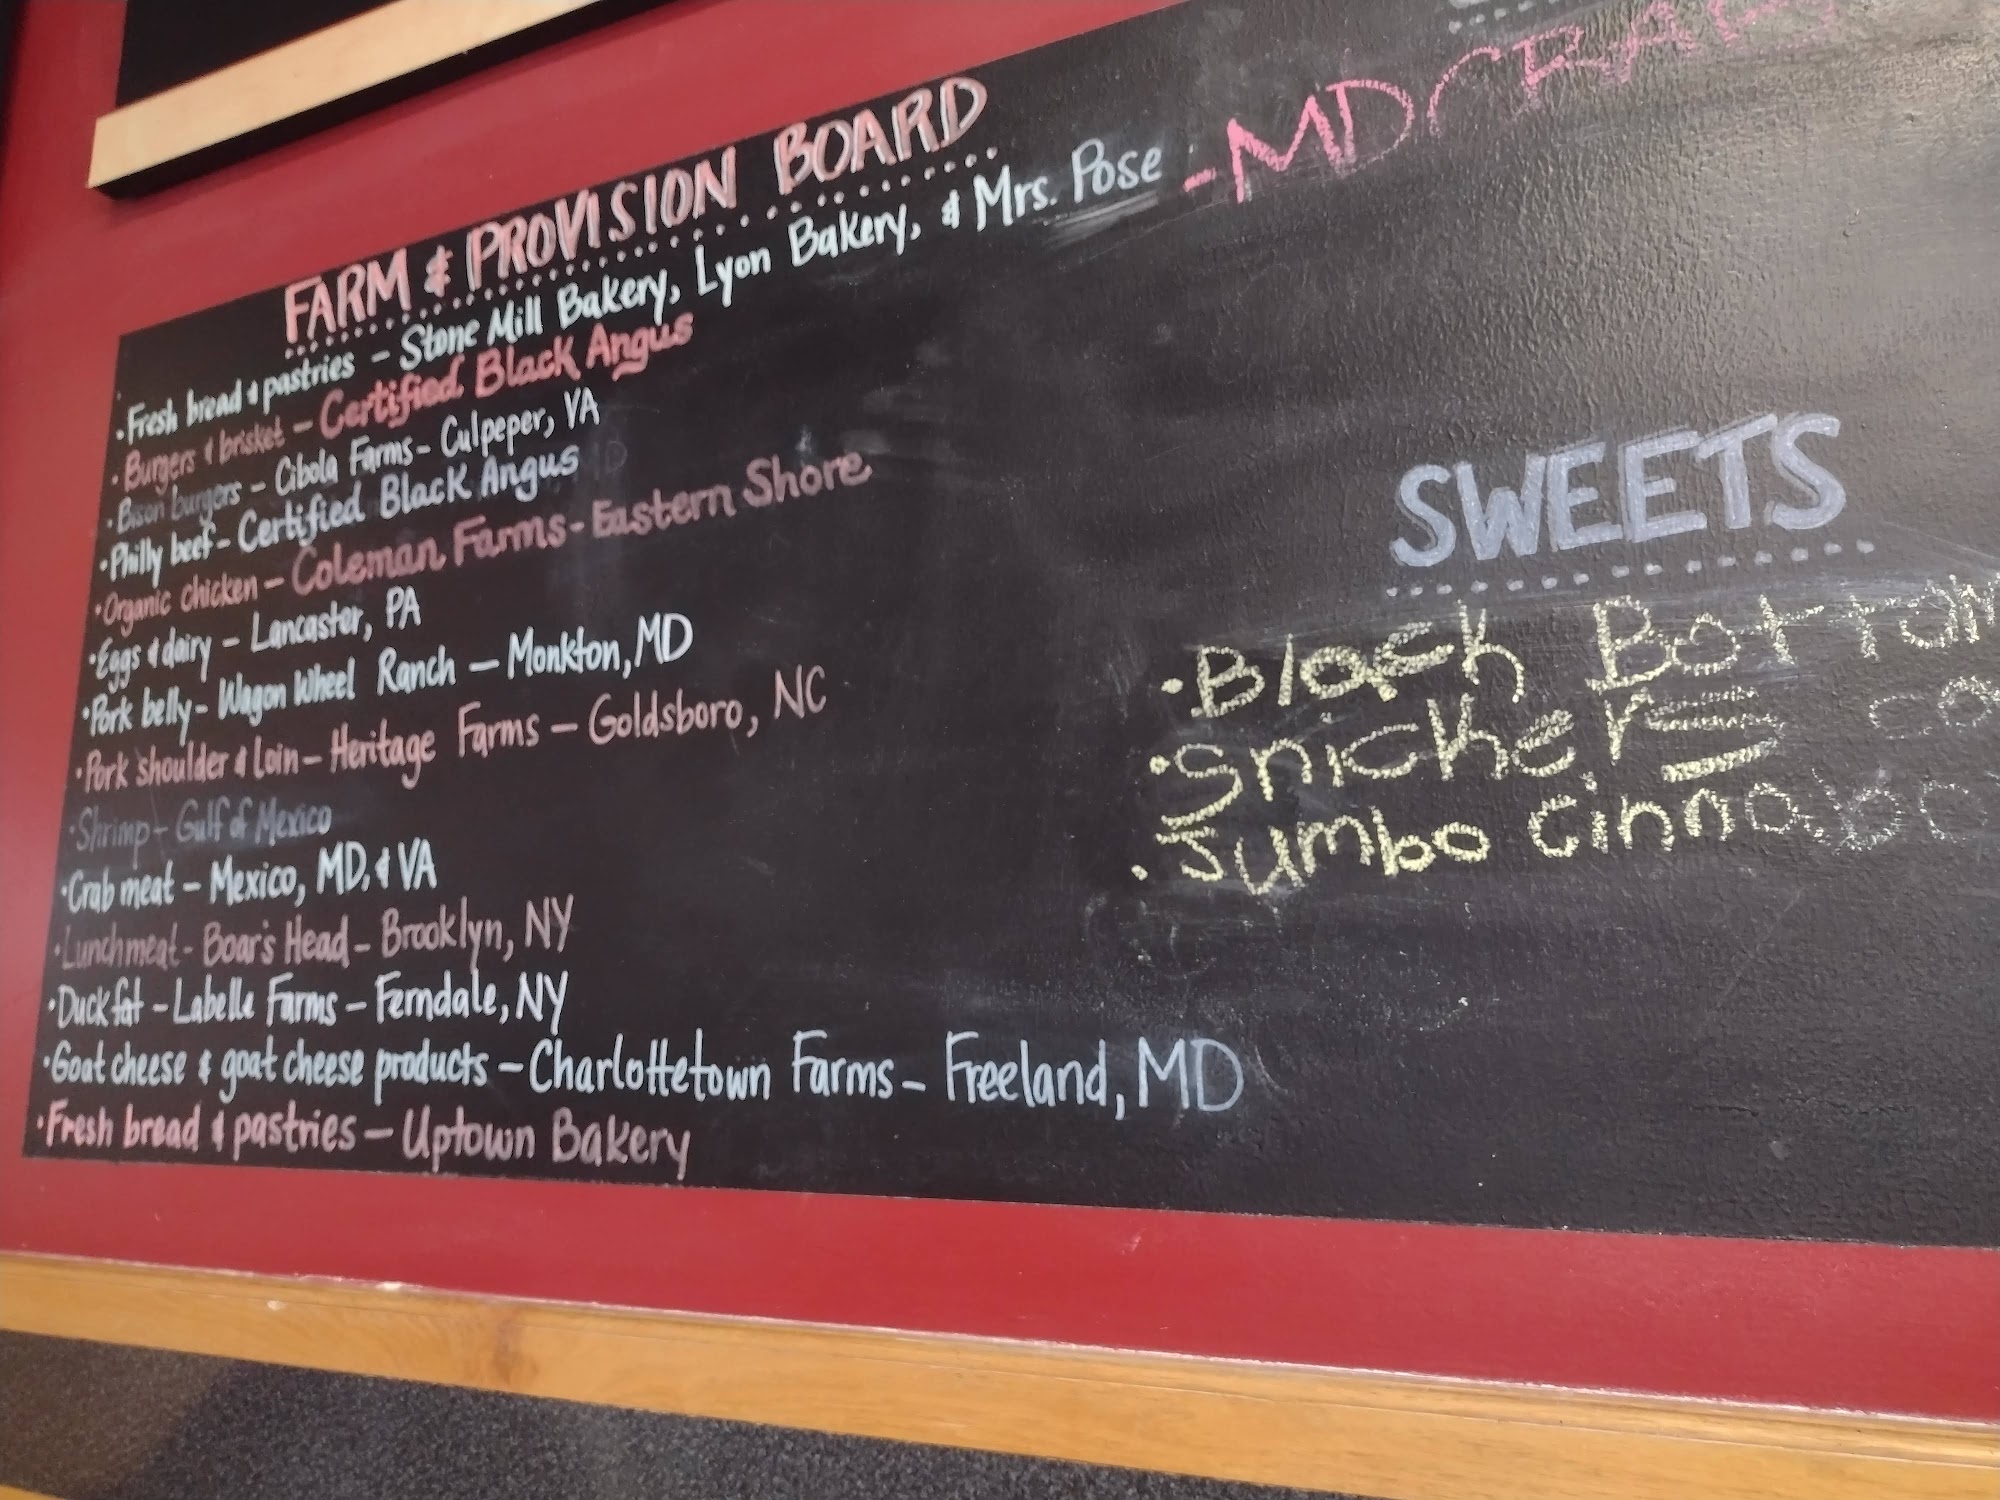 FARM & PROVISION BOARD
• Fresh bread & pastries – Stone Mill Bakery, Lyon Bakery, & Mrs. Pose
• Burgers & brisket – Certified Black Angus
• Bison burgers – Cibola Farms – Culpeper, VA
• Philly beef – Certified Black Angus
• Organic chicken – Coleman Farms – Eastern Shore
• Eggs & dairy – Lancaster, PA
• Pork belly – Wagon Wheel Ranch – Monkton, MD
• Pork shoulder & Loin – Heritage Farms – Goldsboro, NC
• Shrimp – Gulf of Mexico
• Crab meat – Mexico, MD, & VA
• Lunchmeat – Boar's Head – Brooklyn, NY
• Duck fat – Labelle Farms – Ferndale, NY
• Goat cheese & goat cheese products – Charlottetown Farms – Freeland, MD
• Fresh bread & pastries – Uptown Bakery
- MD CRAB
SWEETS
• Black Bottom
• Snickers
• Jumbo